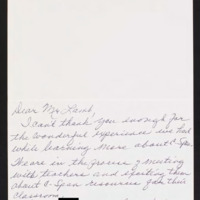 Dear Mr. Lamb,
I can't thank you enough for
the wonderful experience I've had
while learning more about C-Span.
I am in the process of meeting
with teachers and exciting them
about C-Span resources for their
classroom.